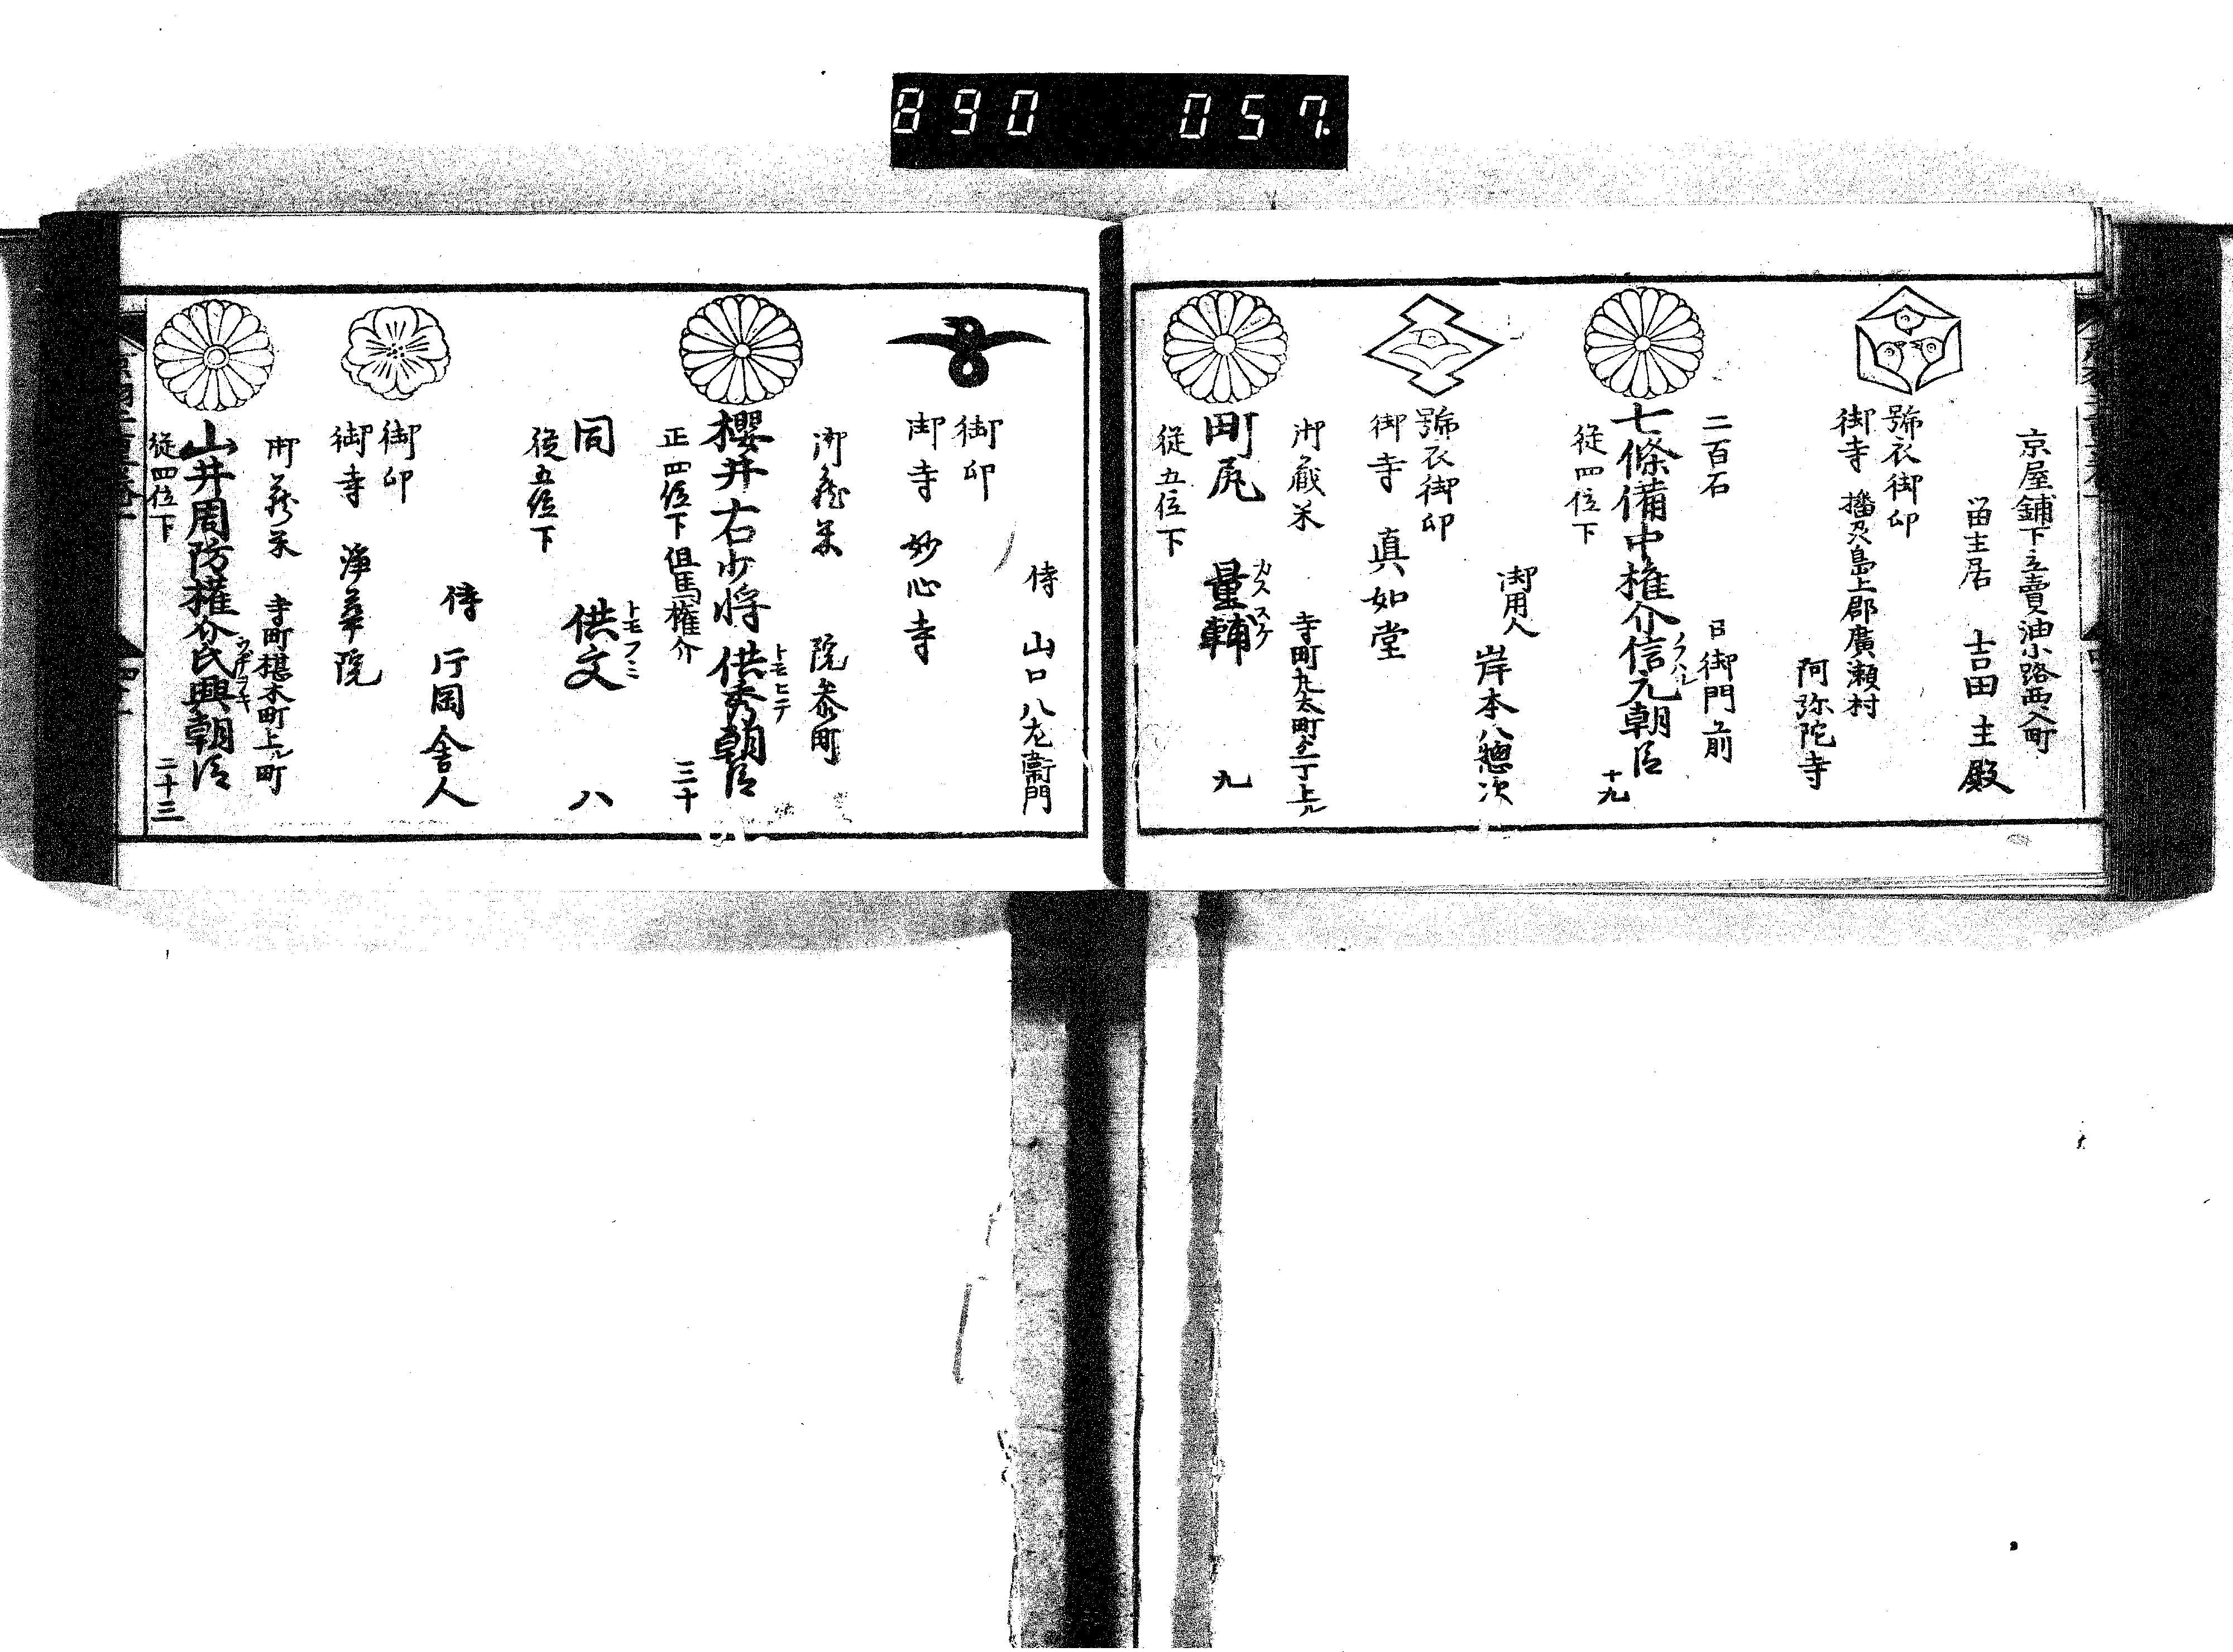 890 057.
京屋鋪下立賣油小路西入町
留主居 吉田主殿
號衣御印
御寺 攝刕島上郡廣瀬村
阿弥陀寺
二百石 日御門前
七條備中権介信元朝臣 十九
ノフハル
従四位下
御用人 岸本八惣次
號衣御印
御寺 真如堂
御蔵米 寺町丸太町 二丁上ル
町尻 量輔 九
カススケ
従五位下
侍 山口八左衛門
御印
御寺 妙心寺
御蔵米 院参町
櫻井右少将供秀朝臣
トモヒテ
正四位下 但馬権介 三十
同 供文 八
トモフミ
従五位下
侍 片岡舎人
御印
御寺 浄華院
御蔵米 寺町椹木町上ル町
山井周防権介氏興朝臣
ウチヲキ
従四位下 二十三